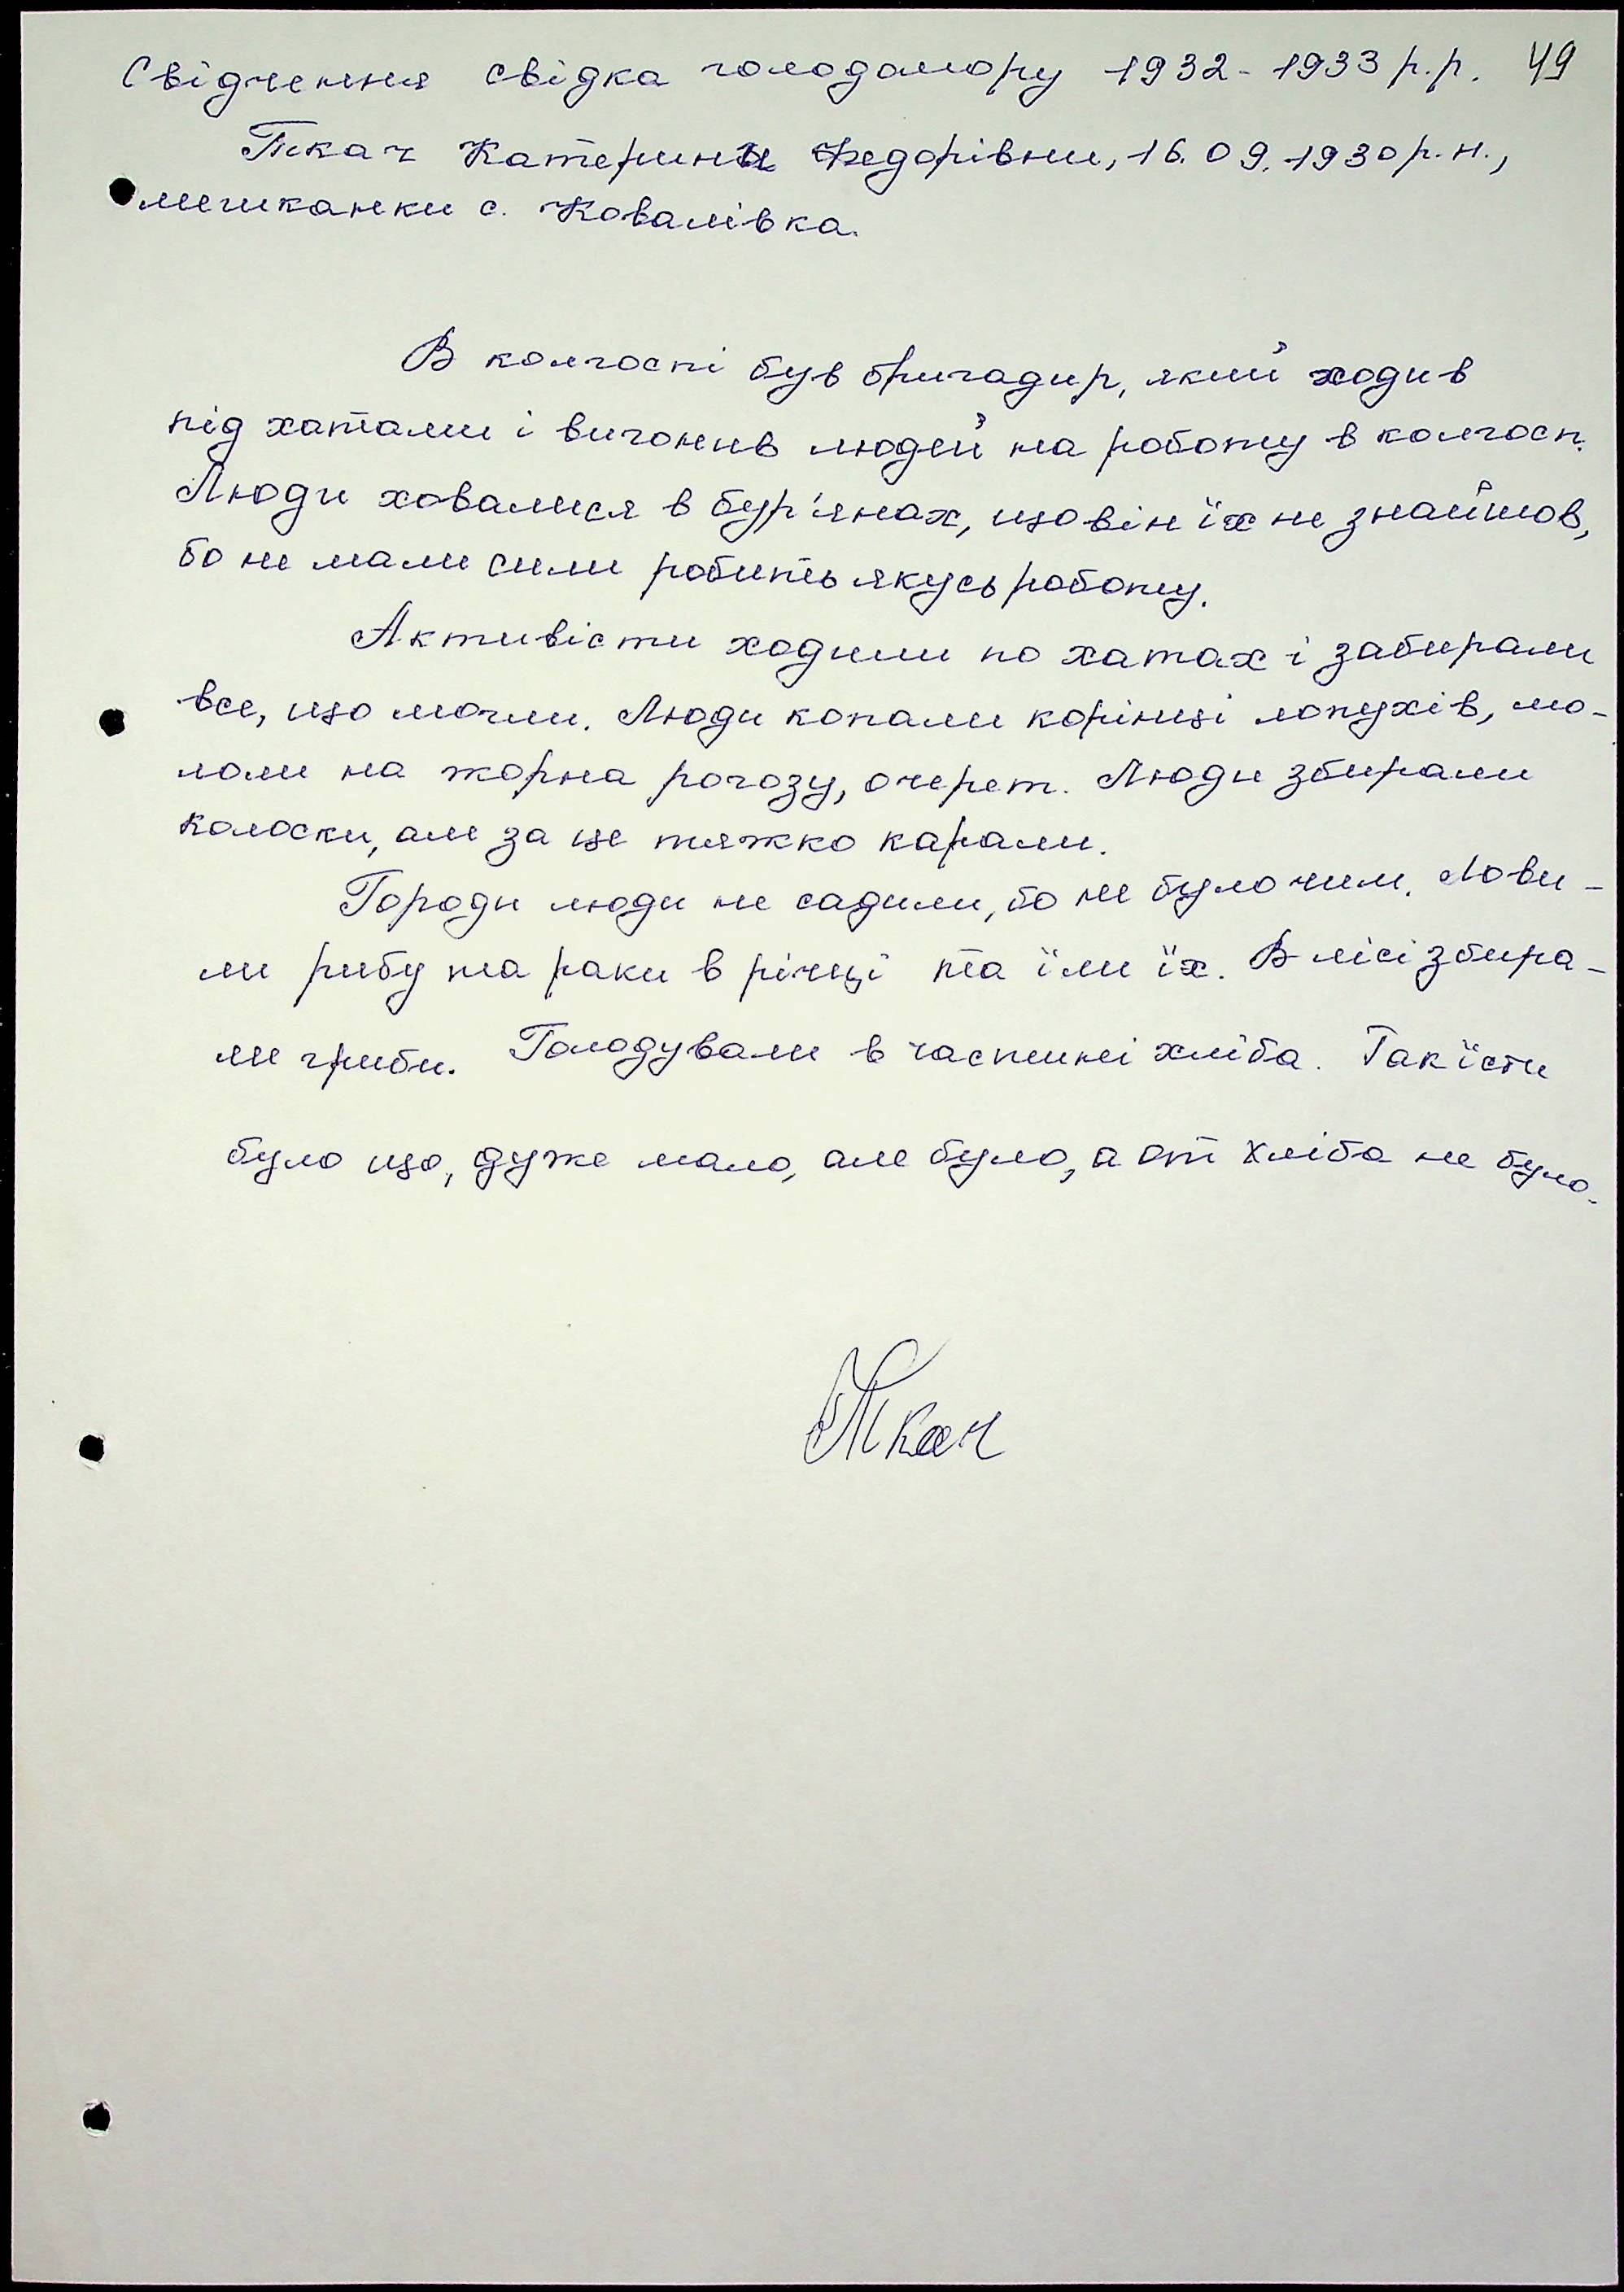 Свідчення свідка голодомору 1932-1933 р.р. 49
Ткач Катерини Федорівни, 16.09.1930 р.н.,
мешканки с. Ковалівка.
В колгоспі був бригадир, який ходив
під хатами і вигонив людей на роботу в колгосп.
Люди ховалися в бур'янах, що він їх не знайшов,
бо не мали сили робить якусь роботу.
Активісти ходили по хатах і забирали
все, що могли. Люди копали корінці лопухів, мо-
лоли на жорна рогозу, очерет. Люди збирали
колоски, але за це тяжко карали.
Городи люди не садили, бо не було чим. Лови-
ли рибу та раки в річці та їли їх. В лісі збира-
ли гриби. Голодували в частині хліба. Так їсти
було що, дуже мало, але було, а от хліба не було.
Ткач